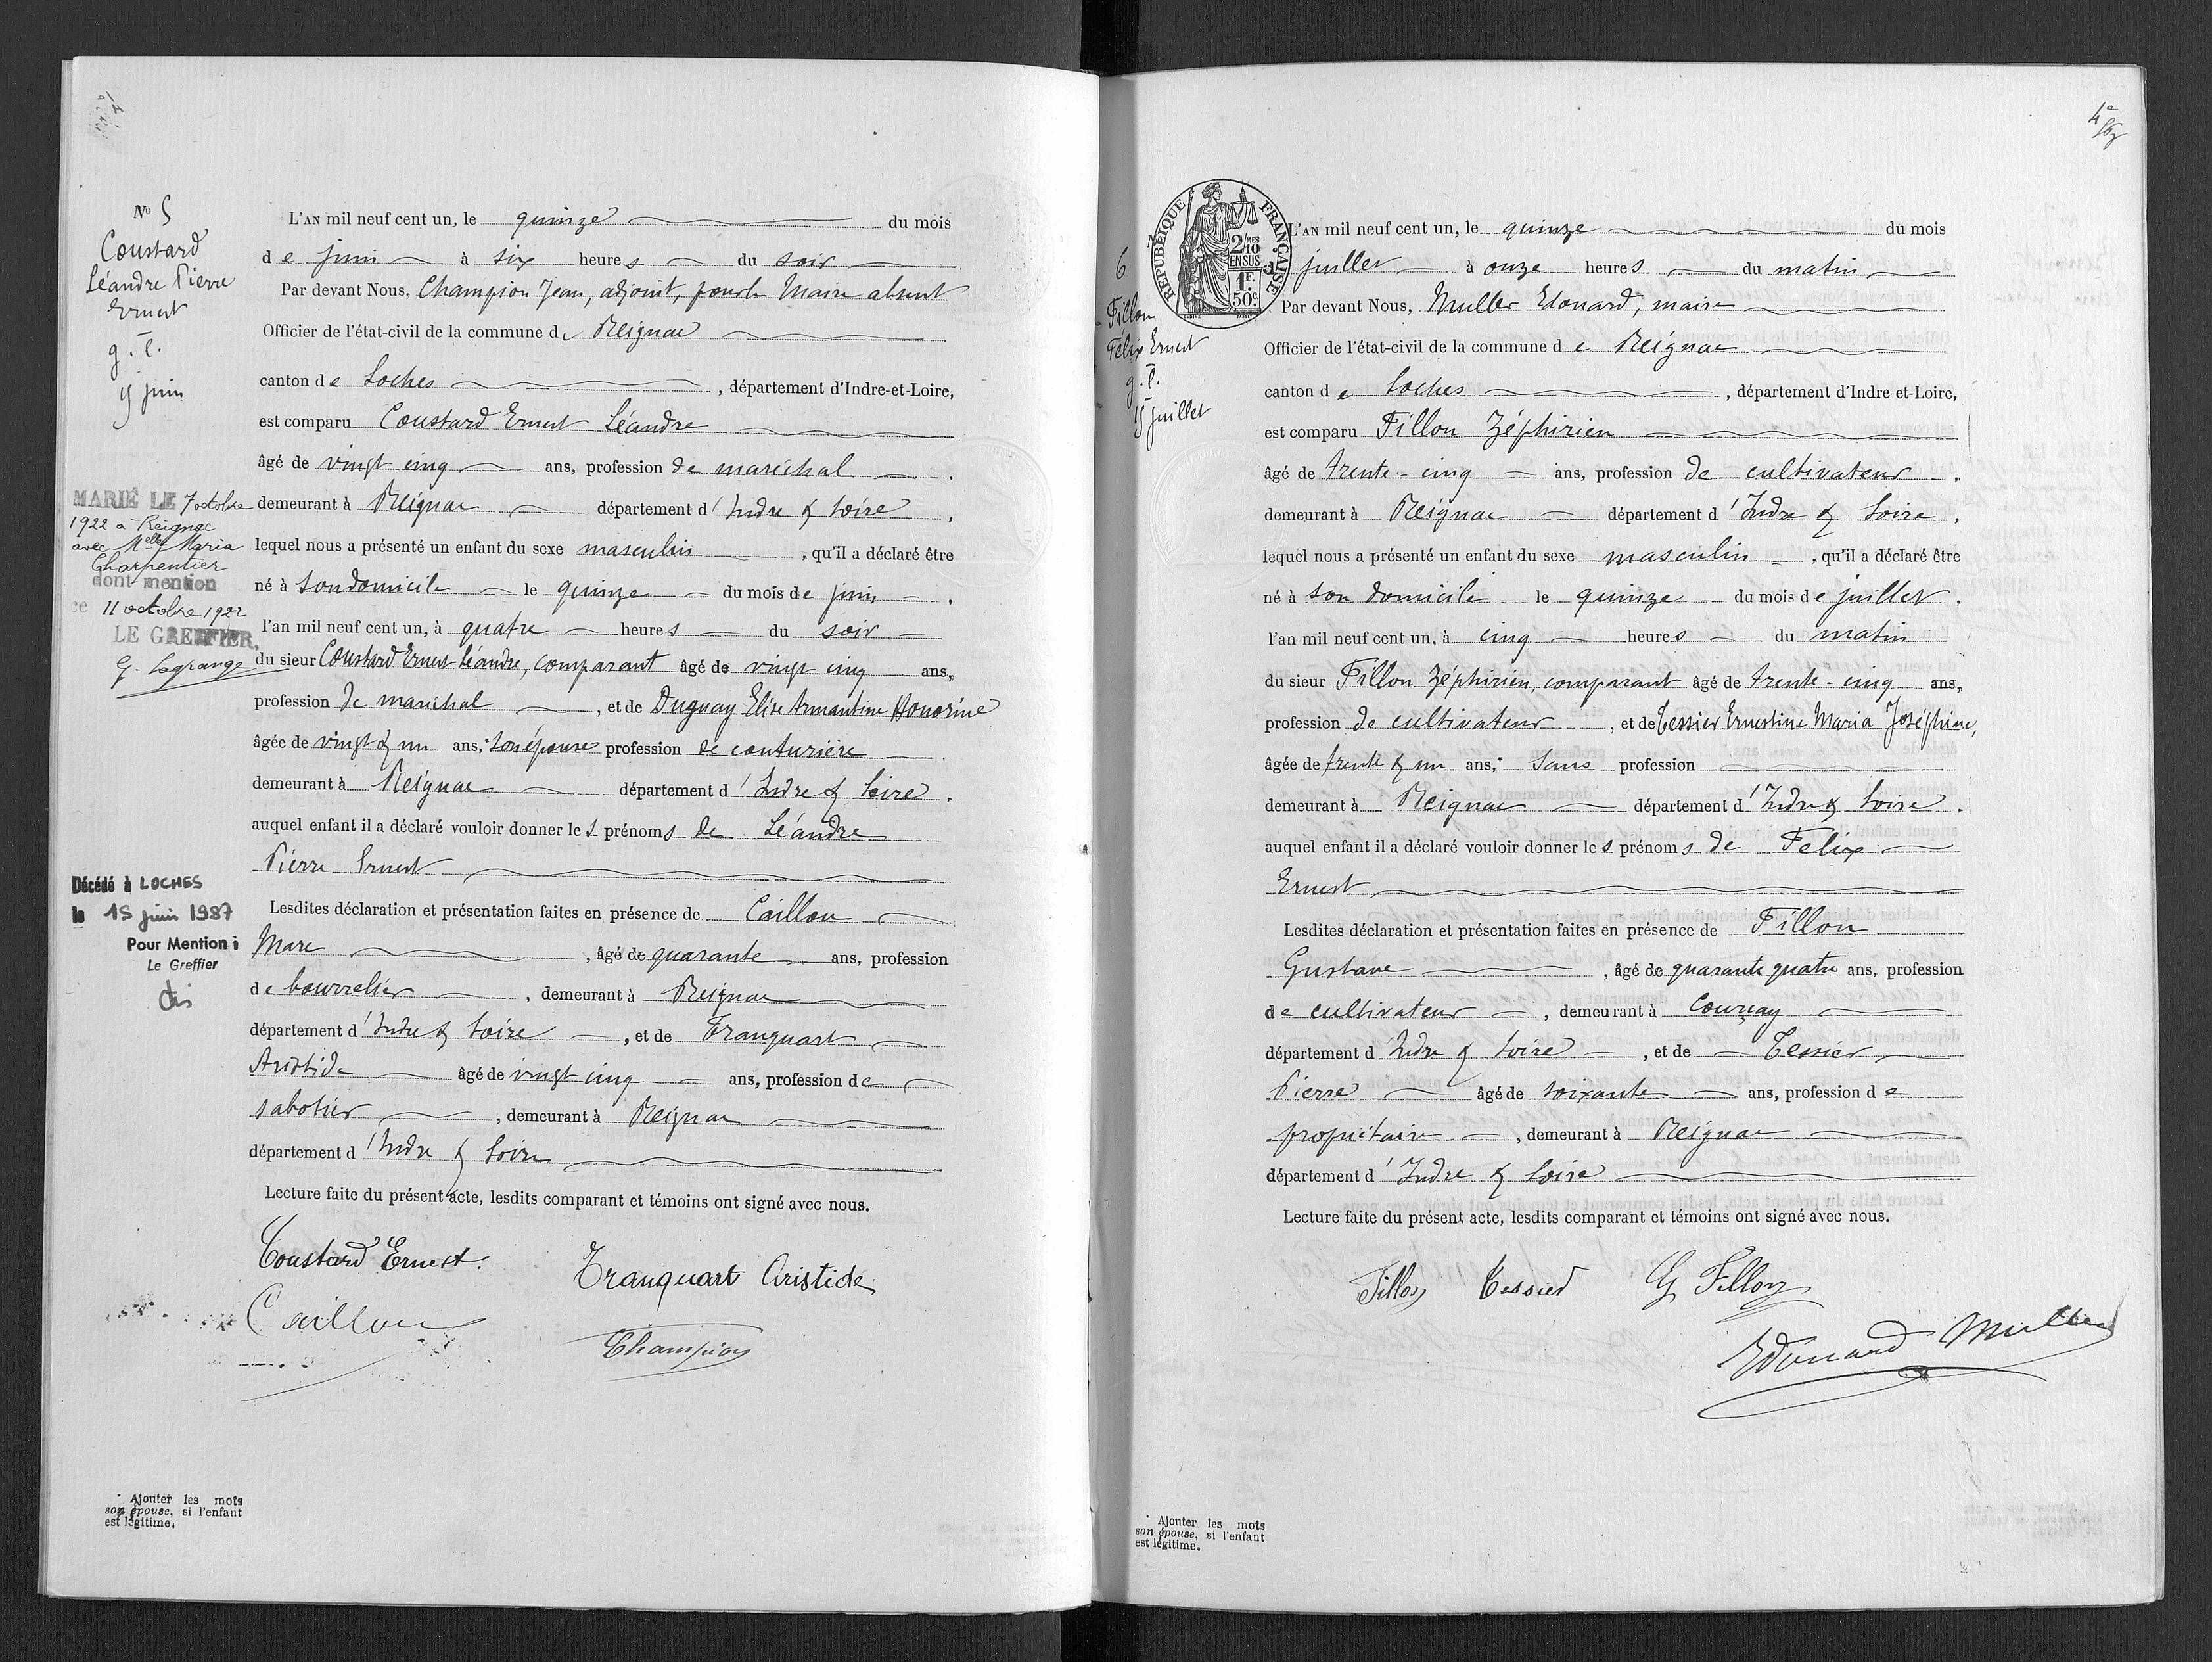 No 5
Coustard
Léandre Pierre
Ernest
g. l.
15 juin
MARIÉ LE 7 octobre
1922 à Reignac
avec Melle Maria
Charpentier
dont mention
ce 11 octobre 1922
LE GREFFIER,
G. Lagrange
Décédé à LOCHES
le 15 juin 1987
Pour Mention :
Le Greffier
L'AN mil neuf cent un, le quinze du mois
de juin à six heures du soir
Par devant Nous, Champion Jean, adjoint, pour le Maire absent
Officier de l'état-civil de la commune de Reignac
canton de Loches , département d'Indre-et-Loire,
est comparu Coustard Ernest Léandre
âgé de vingt cinq ans, profession de maréchal .
demeurant à Reignac département d'Indre & Loire ,
lequel nous a présenté un enfant du sexe masculin , qu'il a déclaré être
né à son domicile le quinze du mois de juin .
l'an mil neuf cent un, à quatre heures du soir
du sieur Coustard Ernest Léandre, comparant âgé de vingt cinq ans,
profession de maréchal , et de Duguay Elise Armantine Honorine
âgée de vingt & un ans,* son épouse profession de couturière
demeurant à Reignac département d'Indre & Loire .
auquel enfant il a déclaré vouloir donner les prénoms de Léandre
Pierre Ernest
Lesdites déclaration et présentation faites en présence de Caillou
Marc , âgé de quarante ans, profession
de bourrelier , demeurant à Reignac
département d'Indre & Loire , et de Tranquart
Aristide âgé de vingt cinq ans, profession de
sabotier , demeurant à Reignac
département d'Indre & Loire
Lecture faite du présent acte, lesdits comparant et témoins ont signé avec nous.
Coustard Ernest.
Tranquart Aristide
Caillou
Champion
* Ajouter les mots
son épouse, si l'enfant
est légitime.
6
Fillon
Felix Ernest
g. l.
15 juillet
RÉPUBLIQUE FRANÇAISE
2/10 MES
EN SUS
1F.
50c.
L'AN mil neuf cent un, le quinze du mois
d juillet à onze heures du matin
Par devant Nous, Muller Edouard, maire
Officier de l'état-civil de la commune de Reignac
canton de Loches , département d'Indre-et-Loire,
est comparu Fillon Zéphirien
âgé de trente-cinq ans, profession de cultivateur .
demeurant à Reignac département d'Indre & Loire ,
lequel nous a présenté un enfant du sexe masculin , qu'il a déclaré être
né à son domicile le quinze du mois de juillet .
l'an mil neuf cent un, à cinq heures du matin
du sieur Fillon Zéphirien, comparant âgé de trente-cinq ans,
profession de cultivateur , et de Tessier Ernestine Maria Joséphine,
âgée de trente & un ans,* sans profession
demeurant à Reignac département d'Indre & Loire .
auquel enfant il a déclaré vouloir donner les prénoms de Felix
Ernest
Lesdites déclaration et présentation faites en présence de Fillon
Gustave , âgé de quarante quatre ans, profession
de cultivateur , demeurant à Courçay
département d'Indre & Loire , et de Tessier
Pierre âgé de soixante ans, profession de
propriétaire , demeurant à Reignac
département d'Indre & Loire
Lecture faite du présent acte, lesdits comparant et témoins ont signé avec nous.
Fillon Tessier G Fillon
Edouard Muller
* Ajouter les mots
son épouse, si l'enfant
est légitime.